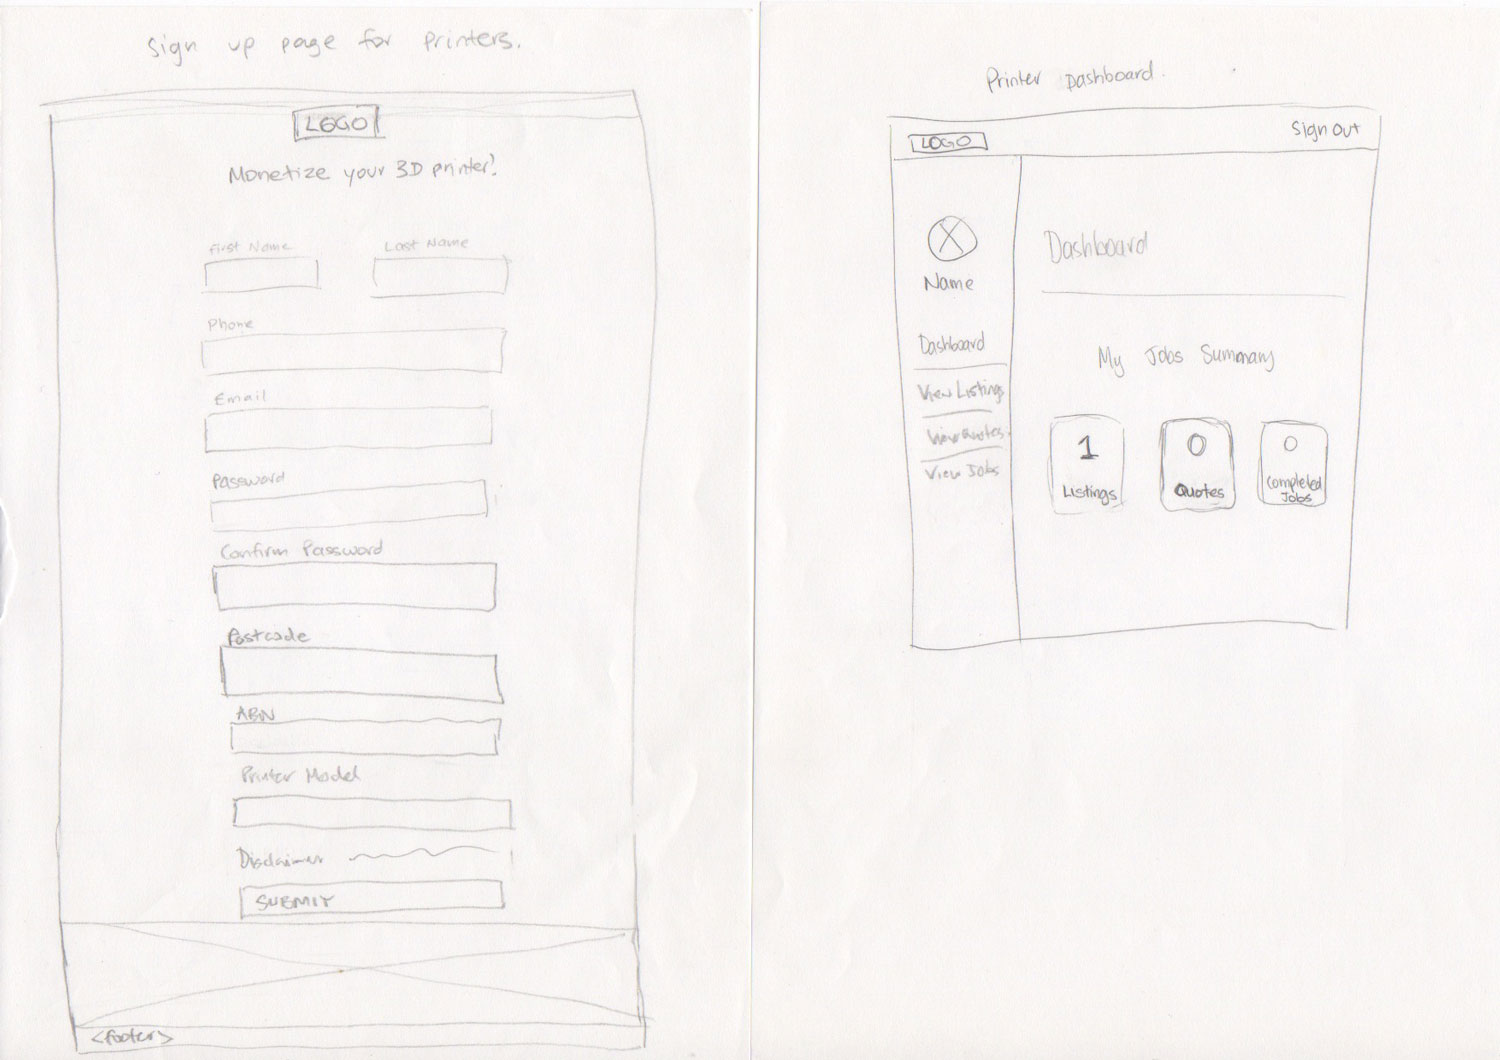 Sign up page for printers.
LOGO
Monetize your 3D printer!
First Name
Last Name
Phone
Email
Password
Confirm Password
Postcode
ABN
Printer Model
Disclaimer
SUBMIT
<footer>
Printer Dashboard.
LOGO
Sign Out
Name
Dashboard
View Listings
View Quotes
View Jobs
Dashboard
My Jobs Summary
1
Listings
0
Quotes
0
Completed
Jobs